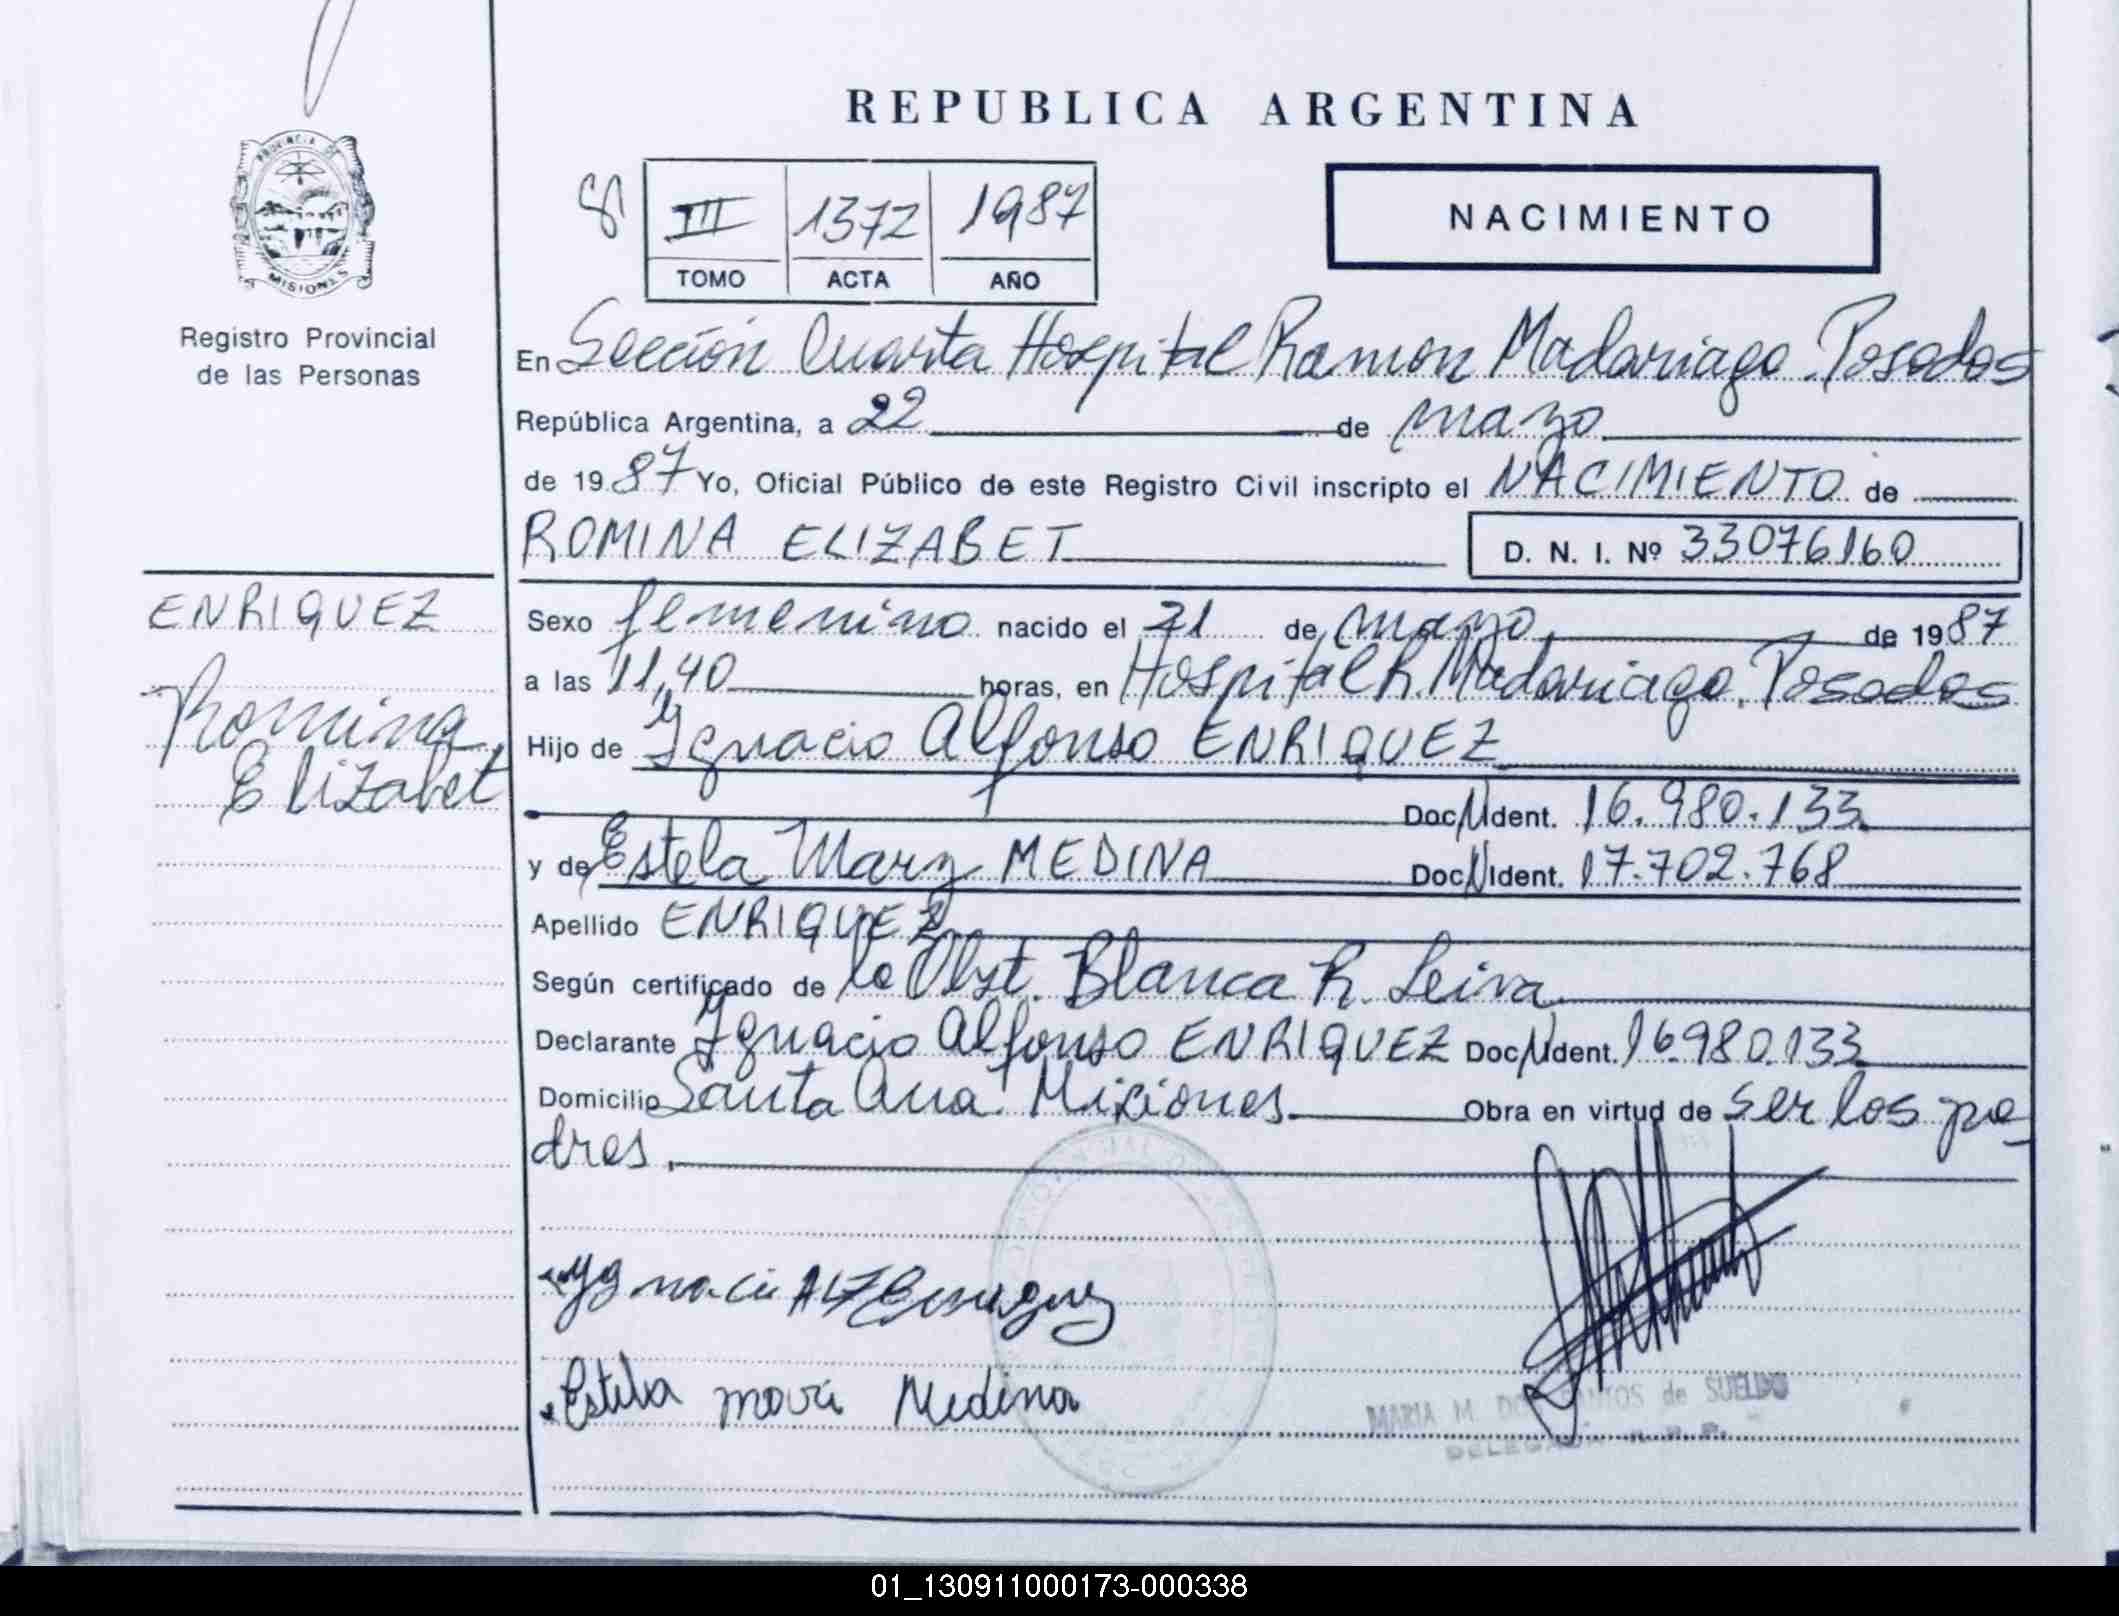 REPUBLICA ARGENTINA
PROVINCIA DE
MISIONES
Registro Provincial
de las Personas
III 1372 1987
TOMO ACTA AÑO
NACIMIENTO
En Sección Cuarta Hospital Ramon Madariaga. Posadas
República Argentina, a 22 de marzo
de 1987 Yo, Oficial Público de este Registro Civil inscripto el NACIMIENTO de
ROMINA ELIZABET D. N. I. Nº 33076160
ENRIQUEZ
Romina
Elizabet
Sexo femenino nacido el 21 de marzo, de 1987
a las 11,40 horas, en Hospital R. Madariaga. Posadas
Hijo de Ygnacio Alfonso ENRIQUEZ
Doc N Ident. 16.980.133
y de Estela Mary MEDINA Doc N Ident. 17.702.768
Apellido ENRIQUEZ
Según certificado de la Obst. Blanca R. Leiva
Declarante Ygnacio Alfonso ENRIQUEZ Doc N Ident. 16.980.133
Domicilio Santa Ana. Misiones Obra en virtud de ser los pa
dres.
Ygnacio Alf Enriquez
Estela mari Medina
MARIA M. DOS SANTOS de SUELDO
DELEGADA R. P. P.
01_130911000173-000338